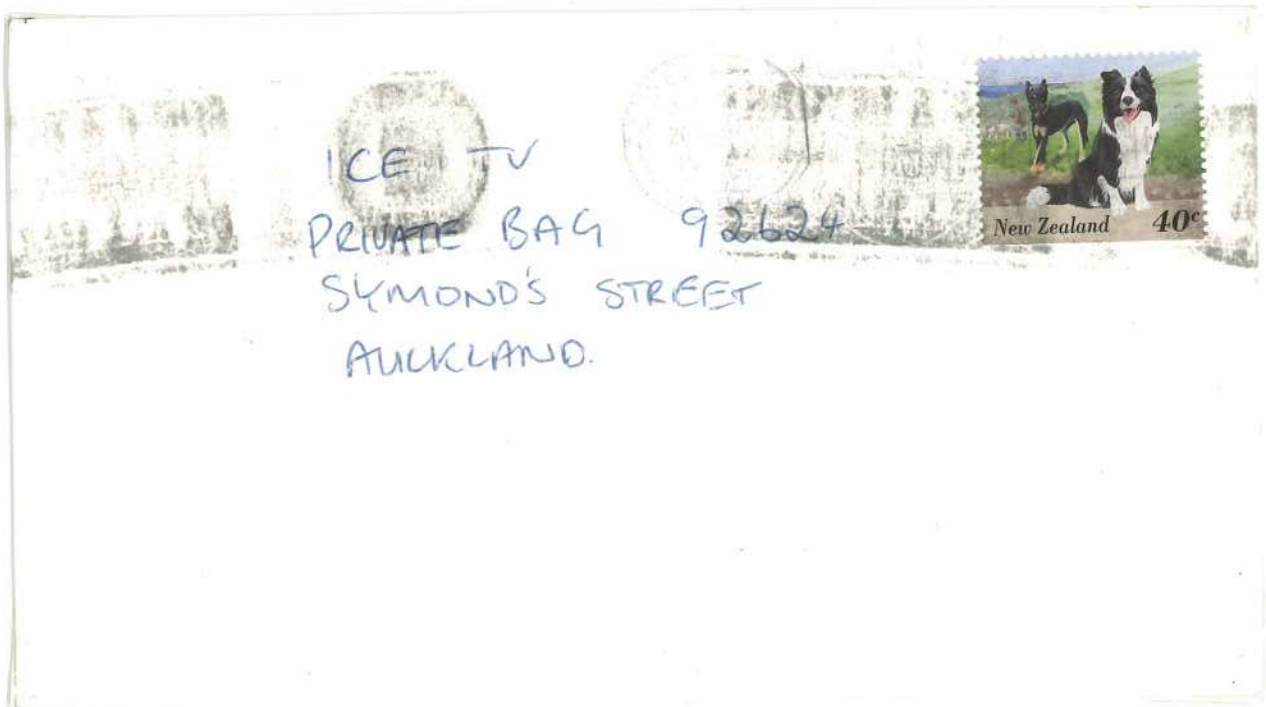 ICE TV
PRIVATE BAG 92624
SYMOND'S STREET
AUCKLAND.
New Zealand 40c